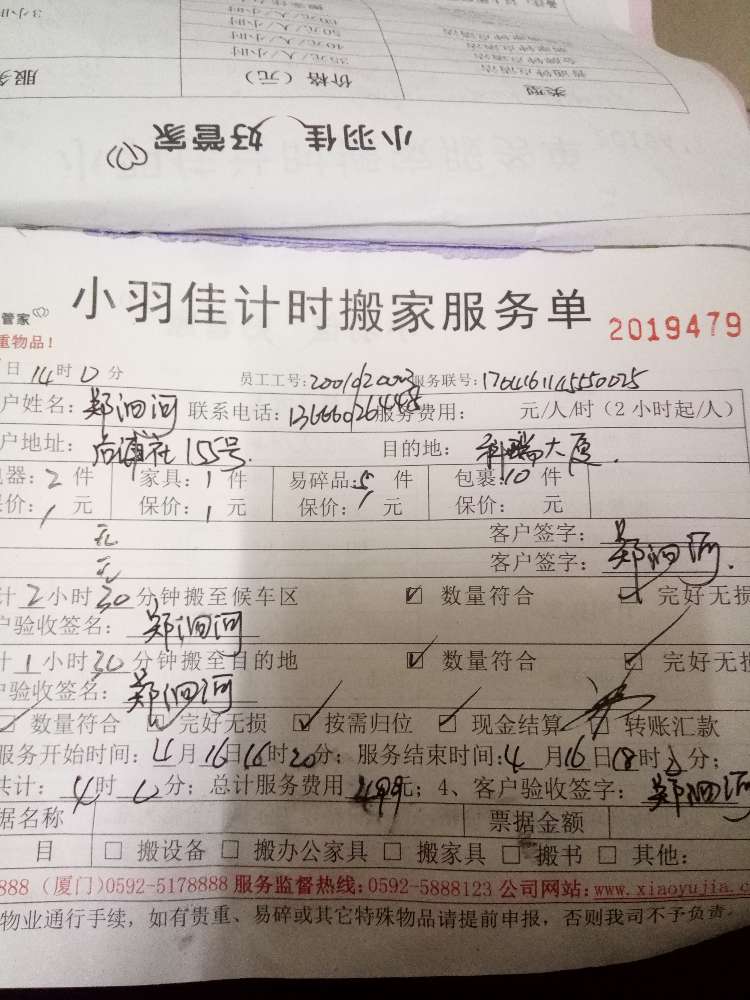 3小时
100元/人/小时
50元/人/小时
40元/人/小时
35元/人/小时
类型 价格（元） 服务
小羽佳 好管家
管家
小羽佳计时搬家服务单 2019479
重物品！
日14时0分 员工工号： 服务联号：
户姓名：郑泗河 联系电话： 服务费用： 元/人/时（2小时起/人）
户地址：155号 目的地：科瑞大厦
器：2件 家具：1件 易碎品：5件 包裹：10件
保价：1元 保价：1元 保价：1元 保价： 元
无 客户签字：
无 客户签字：郑泗河
计2小时30分钟搬至候车区 ☑ 数量符合 ☑ 完好无损
户验收签名：郑泗河
计1小时30分钟搬至目的地 ☑ 数量符合 ☑ 完好无损
户验收签名：郑泗河
☑ 数量符合 ☑ 完好无损 ☑ 按需归位 ☑ 现金结算 转账汇款
服务开始时间：4月16日16时20分；服务结束时间：4月16日18时 分；
共计：4时0分；总计服务费用499元；4、客户验收签字：郑泗河
据名称 票据金额
目 □ 搬设备 □ 搬办公家具 □ 搬家具 □ 搬书 □ 其他：
888 (厦门)0592-5178888 服务监督热线:0592-5888123 公司网站:www.xiaoyujia.c
物业通行手续，如有贵重、易碎或其它特殊物品请提前申报，否则我司不予负责。